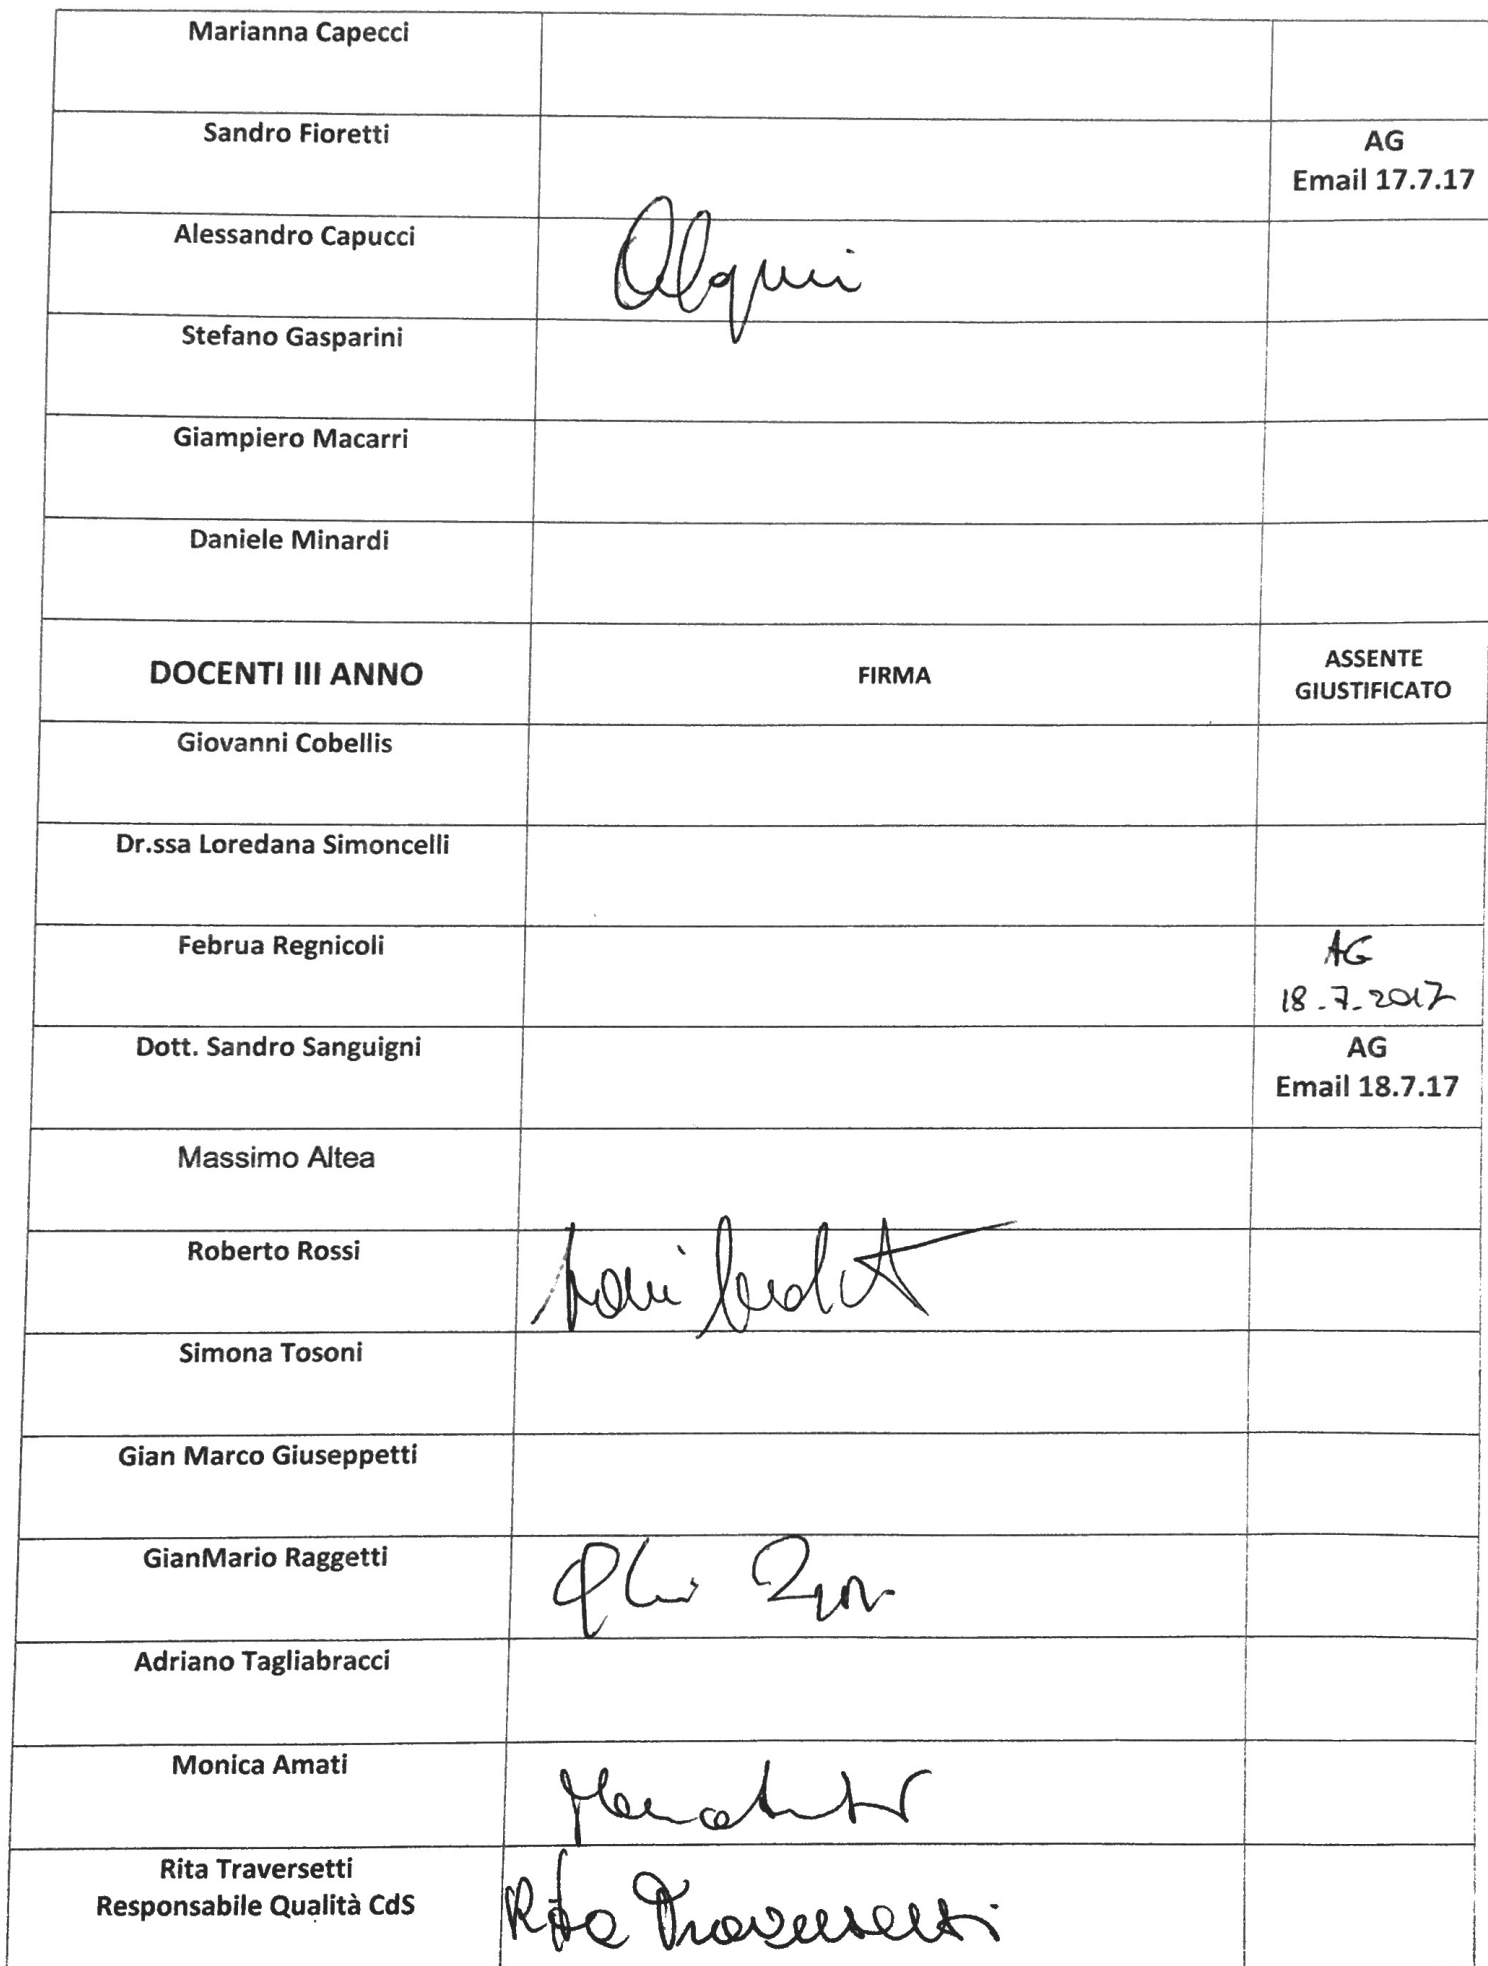 Marianna Capecci
Sandro Fioretti
AG
Email 17.7.17
Alessandro Capucci
Stefano Gasparini
Giampiero Macarri
Daniele Minardi
DOCENTI III ANNO
FIRMA
ASSENTE
GIUSTIFICATO
Giovanni Cobellis
Dr.ssa Loredana Simoncelli
Februa Regnicoli
AG
18.7.2017
Dott. Sandro Sanguigni
AG
Email 18.7.17
Massimo Altea
Roberto Rossi
Simona Tosoni
Gian Marco Giuseppetti
GianMario Raggetti
Adriano Tagliabracci
Monica Amati
Rita Traversetti
Responsabile Qualità CdS
Rita Traversetti